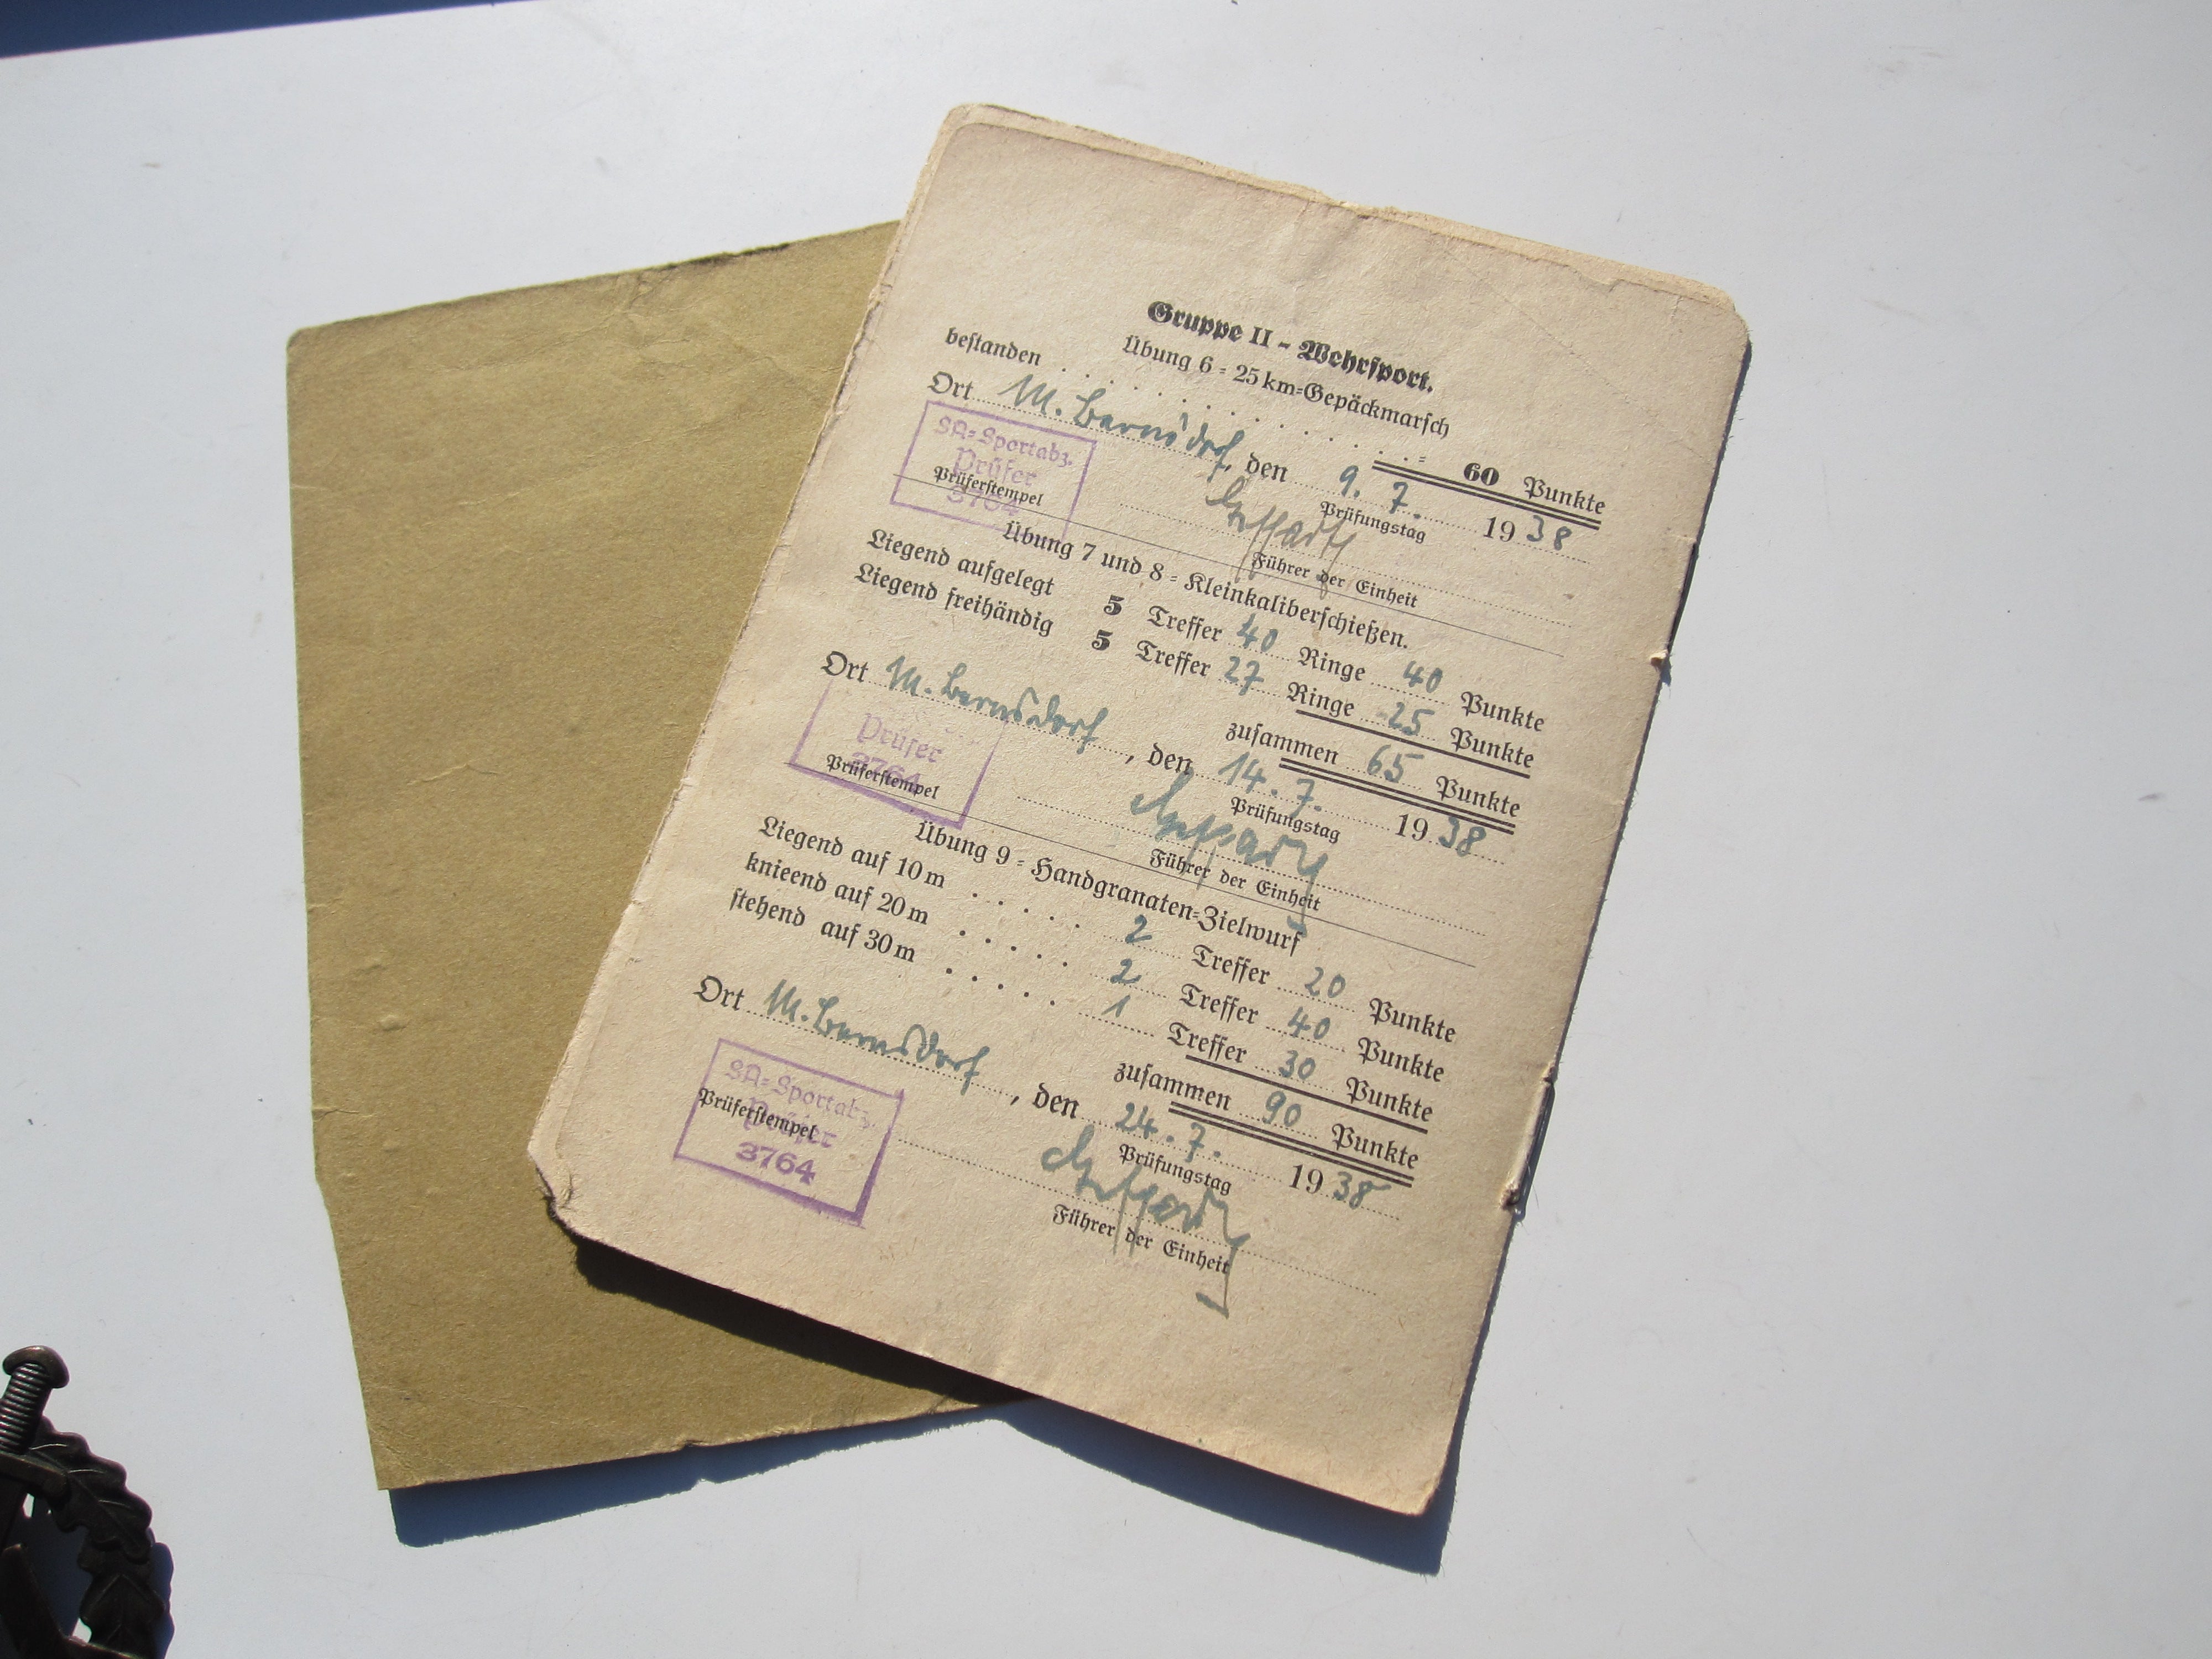 Gruppe II - Wehrsport.
Übung 6 = 25 km=Gepäckmarsch
bestanden . . . . . . . . . . . . . . = 60 Punkte
Ort M. Bernsdorf, den 9. 7. 1938
Prüfungstag
SA=Sportabz.
Prüfer
3764
Prüferstempel
Führer der Einheit
Übung 7 und 8 = Kleinkaliberschießen.
Liegend aufgelegt 5 Treffer 40 Ringe 40 Punkte
Liegend freihändig 5 Treffer 27 Ringe 25 Punkte
zusammen 65 Punkte
Ort M. Bernsdorf, den 14. 7. 1938
Prüfungstag
Prüfer
3764
Prüferstempel
Führer der Einheit
Übung 9 = Handgranaten=Zielwurf
Liegend auf 10 m . . . . . 2 Treffer 20 Punkte
knieend auf 20 m . . . . . 2 Treffer 40 Punkte
stehend auf 30 m . . . . . 1 Treffer 30 Punkte
zusammen 90 Punkte
Ort M. Bernsdorf, den 24. 7. 1938
Prüfungstag
SA=Sportabz.
Prüfer
3764
Prüferstempel
Führer der Einheit